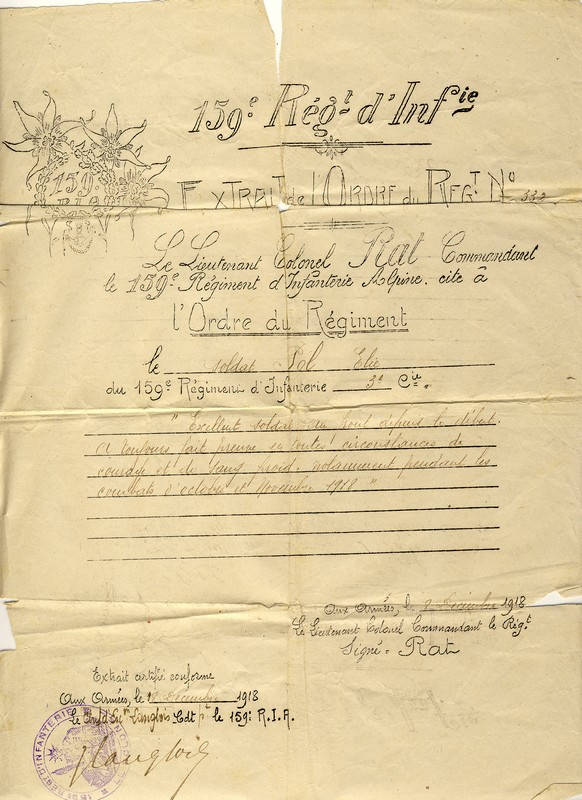 159e Régt d'Infie
159e
R.I.A.
Extrait de l'Ordre du Régt No 332
Le Lieutenant Colonel Rat Commandant
le 159e Régiment d'Infanterie Alpine. cite à
l'Ordre du Régiment
le soldat Pol Elie
du 159e Régiment d'Infanterie 3e Cie.
" Excellent soldat au front depuis le début.
a toujours fait preuve en toutes circonstances de
courage et de sang froid. notamment pendant les
combats d'octobre et Novembre 1918 "
Aux Armées, le Décembre 1918
Le Lieutenant Colonel Commandant le Régt
Signé - Rat
Extrait certifié conforme
Aux Armées, le Décembre 1918
Langlois Cdt le 159e R.I.A.
Langlois
RÉGT D'INFANTERIE